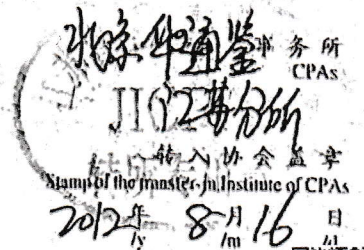 北京华通鉴 事务所
CPAs
江苏分所
转入协会盖章
Stamp of the transfer-in Institute of CPAs
2012年 8月 16日
/y /m /d